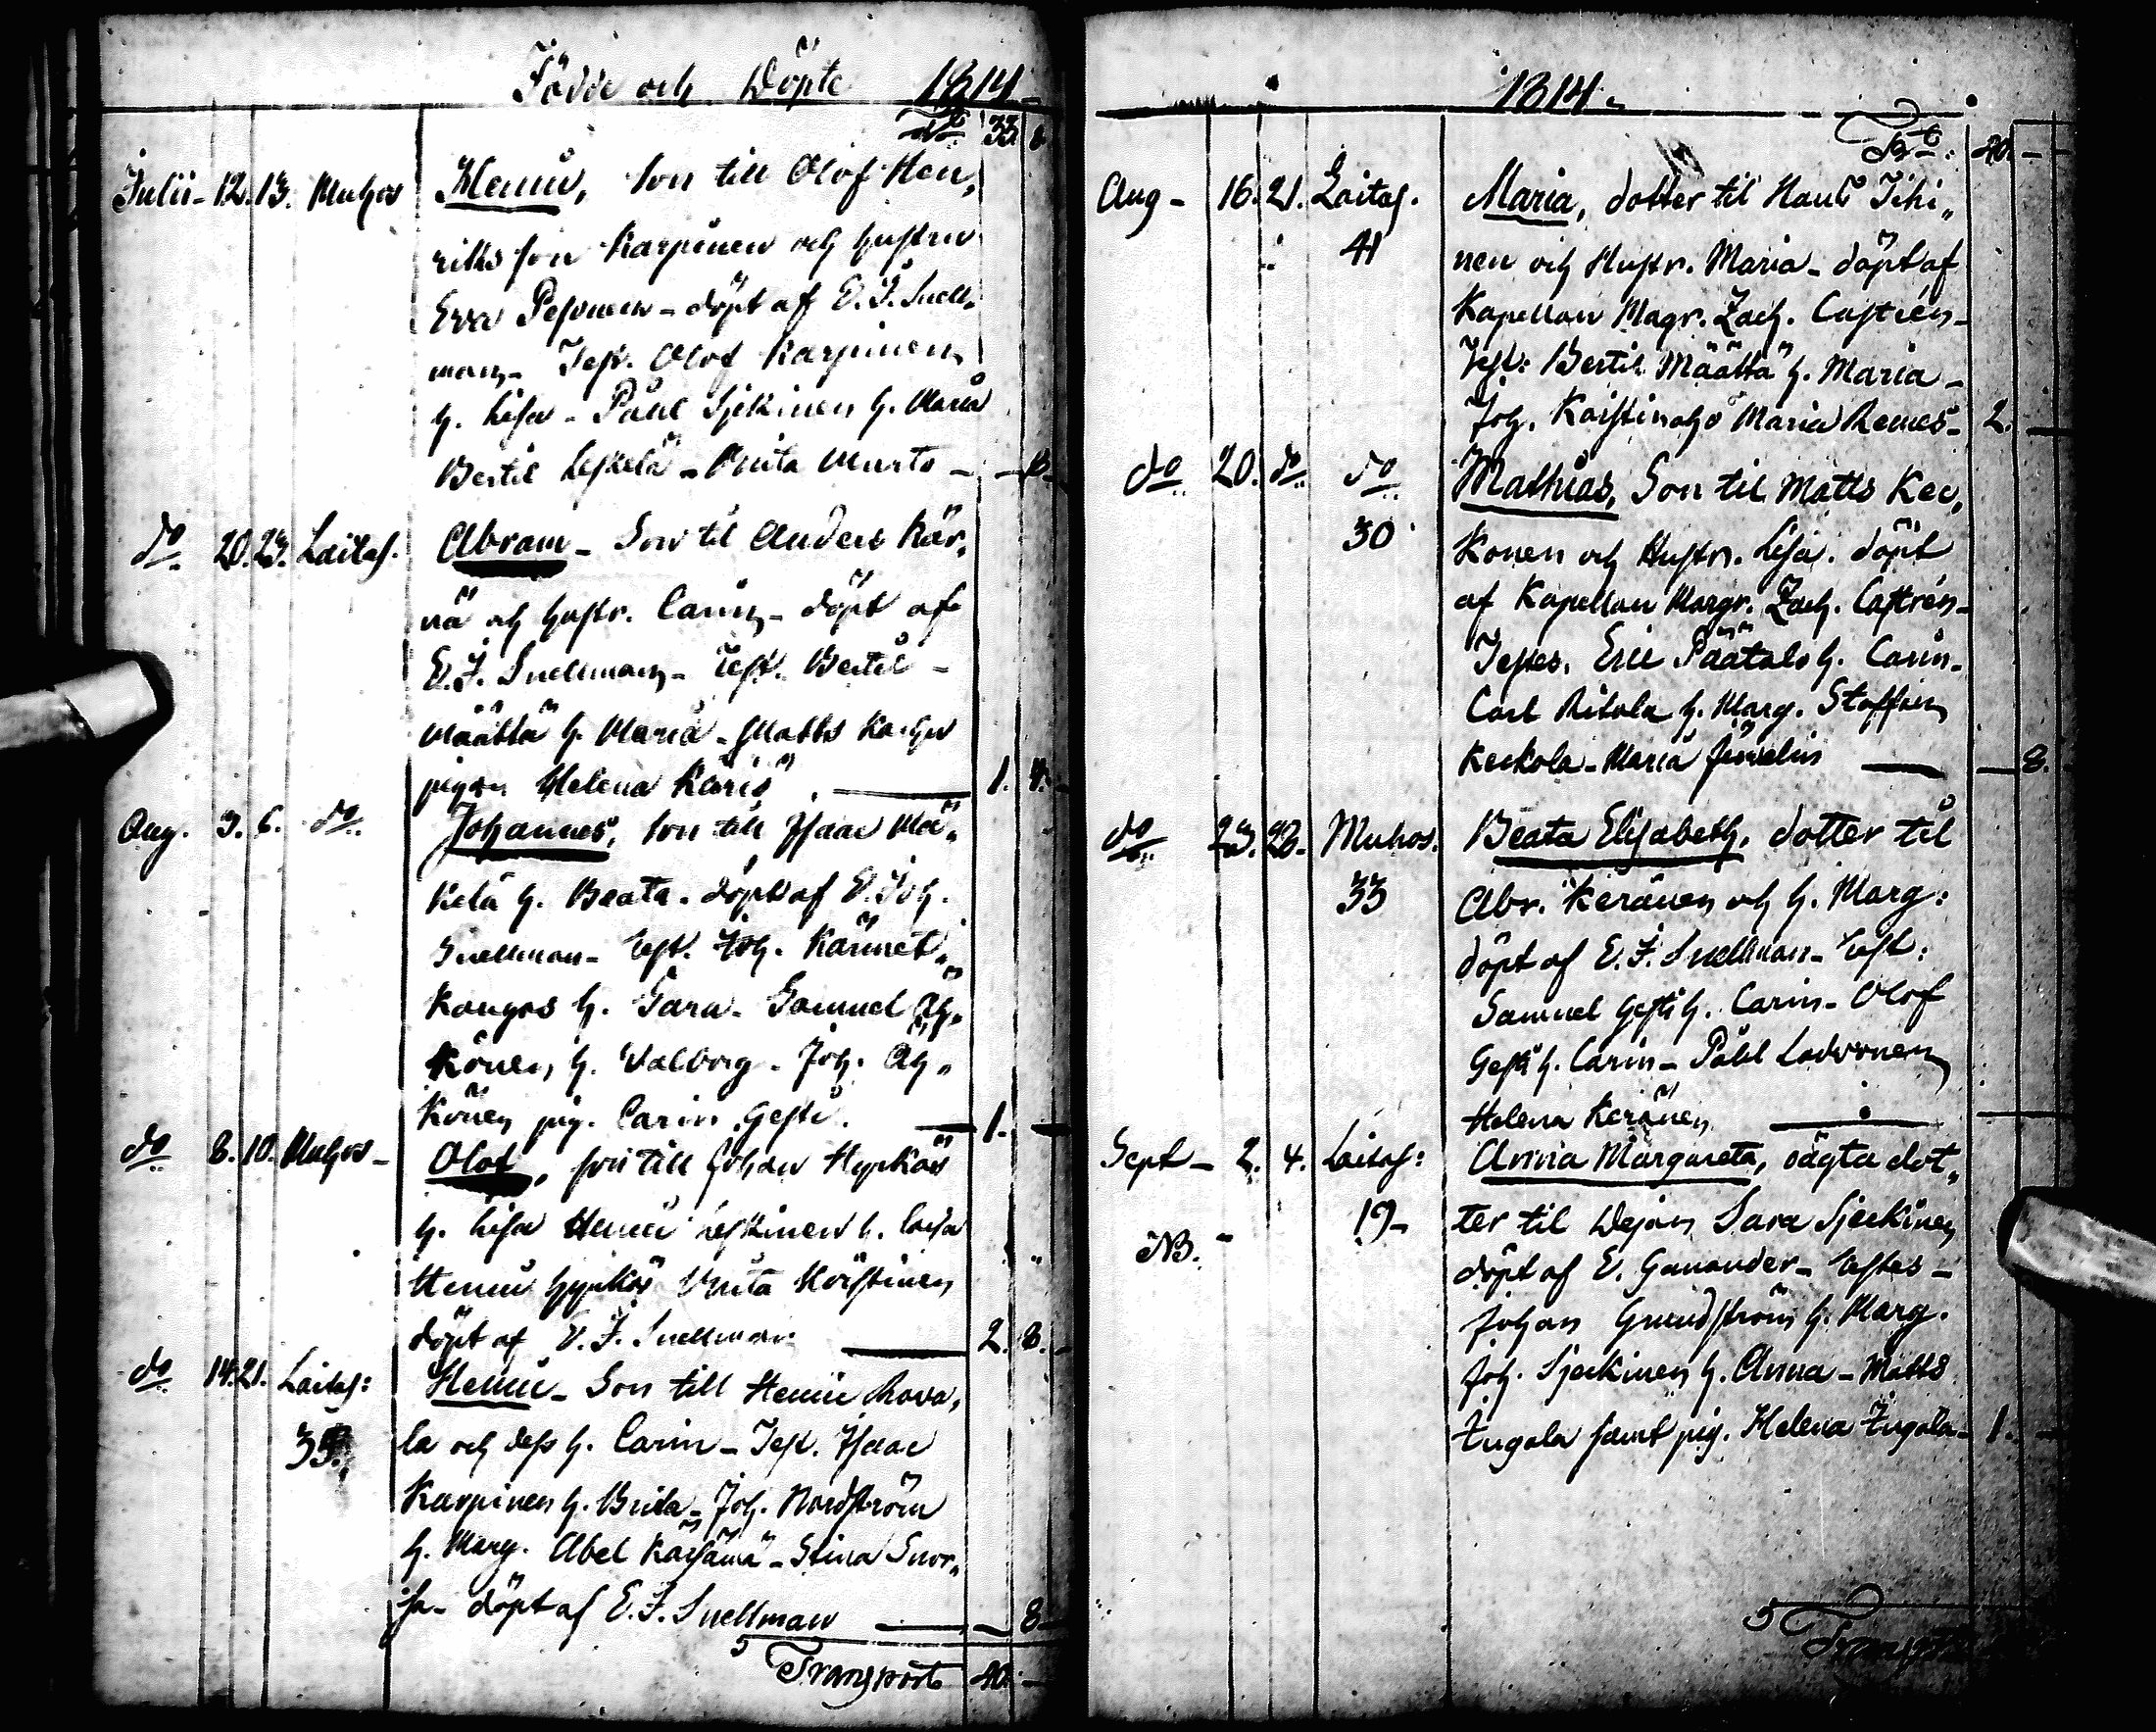 Födde och Döpte 1814
Tr. 33. 8
Julii - 12. 13. Muhos Henric, Son till Olof Hen„
riks son Karpinen och hustru
Eva Pesonen - döpt af E. J. Snell„
man - Test. Olof Karpinen
h. Lisa - Påhl Sjekinen h. Maria
Bertil Leskelä - Brita Murto - 8
do 20. 23. Laitas. Abram - Son til Anders Kär„
nä och hustr. Carin - döpt af
E. J. Snellman - Test. Bertil -
Määttä h. Maria - Matts
pigan Helena 1. 4.
Aug. 3. 6. do Johannes, Son till Isaac Mä„
kelä h. Beata - döpt af E. Joh.
Snellman - Test. Joh. Kärmet„
kangas h. Sara - Samuel Ah„
könen h. Valborg - Joh. Ah„
könen pig. Carin Gesti. 1. -
do 8. 10. Muhos - Olof, son till Johan Hyrkäs
h. Lisa Henric Leskinen h. Caisa
Henric Hyrkäs Brita Kärstinen
döpt af E. J. Snellman 2. 8.
do 14. 21. Laitas: Henric - Son till Henric Rova„
35. la och dess h. Carin - Test. Isaac
Karpinen h. Brita - Joh. Nordström
h. Marg. Abel - Stina Snor„
sa - döpt af E. J. Snellman - 8
5 Transport 40. -
1814.
Trt. 40. -
Aug - 16. 21. Laitas. Maria, dotter til Hans Tihi„
41 nen och Hustr. Maria - döpt af
Kapellan Magr. Zach. Castrén -
Test: Bertil Määttä h. Maria -
Joh. Kaistinaho Maria Remes - 2. -
do 20. do do Mathias, Son til Matts Kec„
30 konen och Hustr. Lisa. döpt
af Kapellan Magr. Zach. Castrén -
Testes. Eric Päätalo h. Carin -
Carl Ritola h. Marg. Staffan
Keckola - Maria - 8.
do 23. 28. Muhos. Beata Elisabeth, dotter til
33 Abr. Keränen och h. Marg:
döpt af E. J. Snellman - Test:
Samuel Gesti h. Carin - Olof
Gesti h. Carin - Påhl Lovvonen
Helena Keränen
Sept - 2. 4. Laitas: Anna Margareta, oägta dot„
19 - ter til Dejan Sara Sjeckinen
NB. döpt af E. Gananader - Testes -
Johan Grundström h. Marg.
Joh. Sjeckinen h. Anna - Matts
Tugola samt pig. Helena Tugola - 1. -
5 Transport